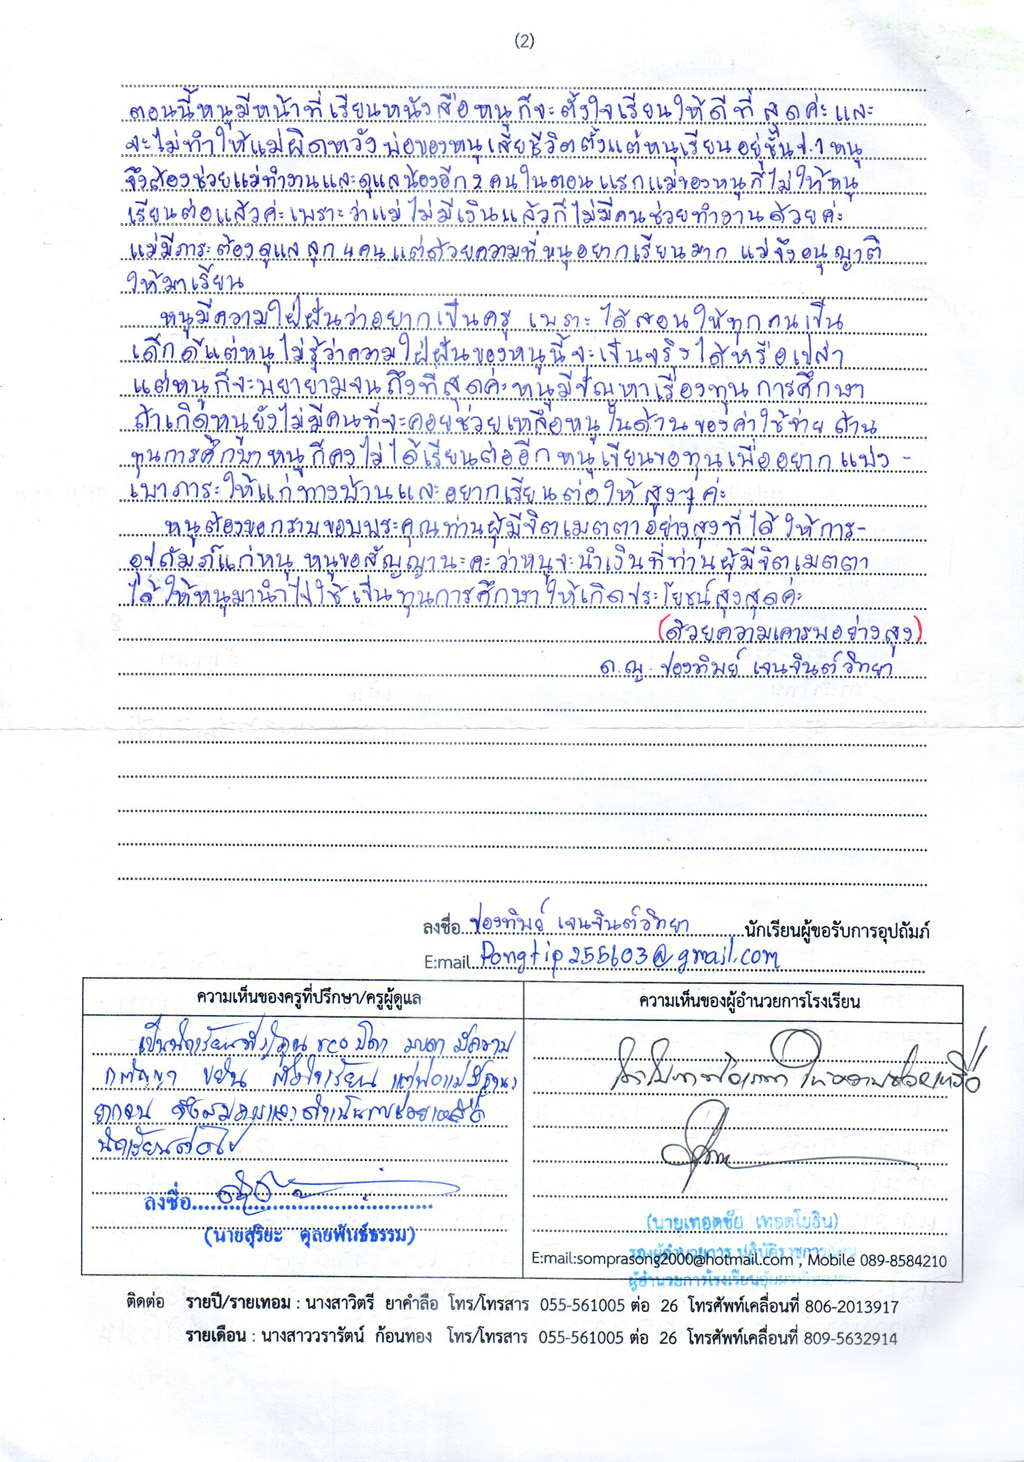 (2)
ตอนนี้หนูมีหน้าที่เรียนหนังสือหนูก็จะตั้งใจเรียนให้ดีที่สุดค่ะและ
จะไม่ทำให้แม่ผิดหวังพ่อของหนูเสียชีวิตตั้งแต่หนูเรียนอยู่ชั้นป.1หนู
จึงต้องช่วยแม่ทำงานและดูแลน้องอีก2คนในตอนแรกแม่ของหนูก็ไม่ให้หนู
เรียนต่อแล้วค่ะเพราะว่าแม่ไม่มีเงินแล้วก็ไม่มีคนช่วยทำงานด้วยค่ะ
แม่มีภาระต้องดูแลลูก4คนแต่ด้วยความที่หนูอยากเรียนมาก แม่จึงอนุญาติ
ให้มาเรียน
หนูมีความใฝ่ฝันว่าอยากเป็นครู เพราะได้สอนให้ทุกคนเป็น
เด็กดีแต่หนูไม่รู้ว่าความใฝ่ฝันของหนูนี้จะเป็นจริงได้หรือเปล่า
แต่หนูก็จะพยายามจนถึงที่สุดค่ะหนูมีปัญหาเรื่องทุนการศึกษา
ถ้าเกิดหนูยังไม่มีคนที่จะคอยช่วยเหลือหนูในด้านของค่าใช้จ่ายด้าน
ทุนการศึกษาหนูก็คงไม่ได้เรียนต่ออีกหนูเขียนขอทุนเพื่ออยากแบ่ง-
เบาภาระให้แก่ทางบ้านและอยากเรียนต่อให้สูงๆค่ะ
หนูต้องขอกราบขอบพระคุณท่านผู้มีจิตเมตตาอย่างสูงที่ได้ให้การ-
อุปถัมภ์แก่หนู หนูขอสัญญานะคะว่าหนูจะนำเงินที่ท่านผู้มีจิตเมตตา
ได้ให้หนูมานำไปใช้เป็นทุนการศึกษาให้เกิดประโยชน์สูงสุดค่ะ
(ด้วยความเคารพอย่างสูง)
ด.ญ. ปองทิพย์ เจนจินต์วิทยา
ลงชื่อ ปองทิพย์ เจนจินต์วิทยา นักเรียนผู้ขอรับการอุปถัมภ์
E:mail Pongtip255603@gmail.com
ความเห็นของครูที่ปรึกษา/ครูผู้ดูแล
เป็นนักเรียน บิดา มารดา มีความ
กตัญญู ขยัน ตั้งใจเรียน แต่พ่อแม่มีฐานะ
ยากจน จึงสมควร
นักเรียนต่อไป
ลงชื่อ
(นายสุริยะ ดุลยพันธ์ธรรม)
ความเห็นของผู้อำนวยการโรงเรียน
(นายเทอดชัย เทอดโยธิน)
รองผู้อำนวยการ ปฏิบัติราชการแทน
E:mail:somprasong2000@hotmail.com , Mobile 089-8584210
ติดต่อ รายปี/รายเทอม : นางสาวิตรี ยาคำลือ โทร/โทรสาร 055-561005 ต่อ 26 โทรศัพท์เคลื่อนที่ 806-2013917
รายเดือน : นางสาววรารัตน์ ก้อนทอง โทร/โทรสาร 055-561005 ต่อ 26 โทรศัพท์เคลื่อนที่ 809-5632914